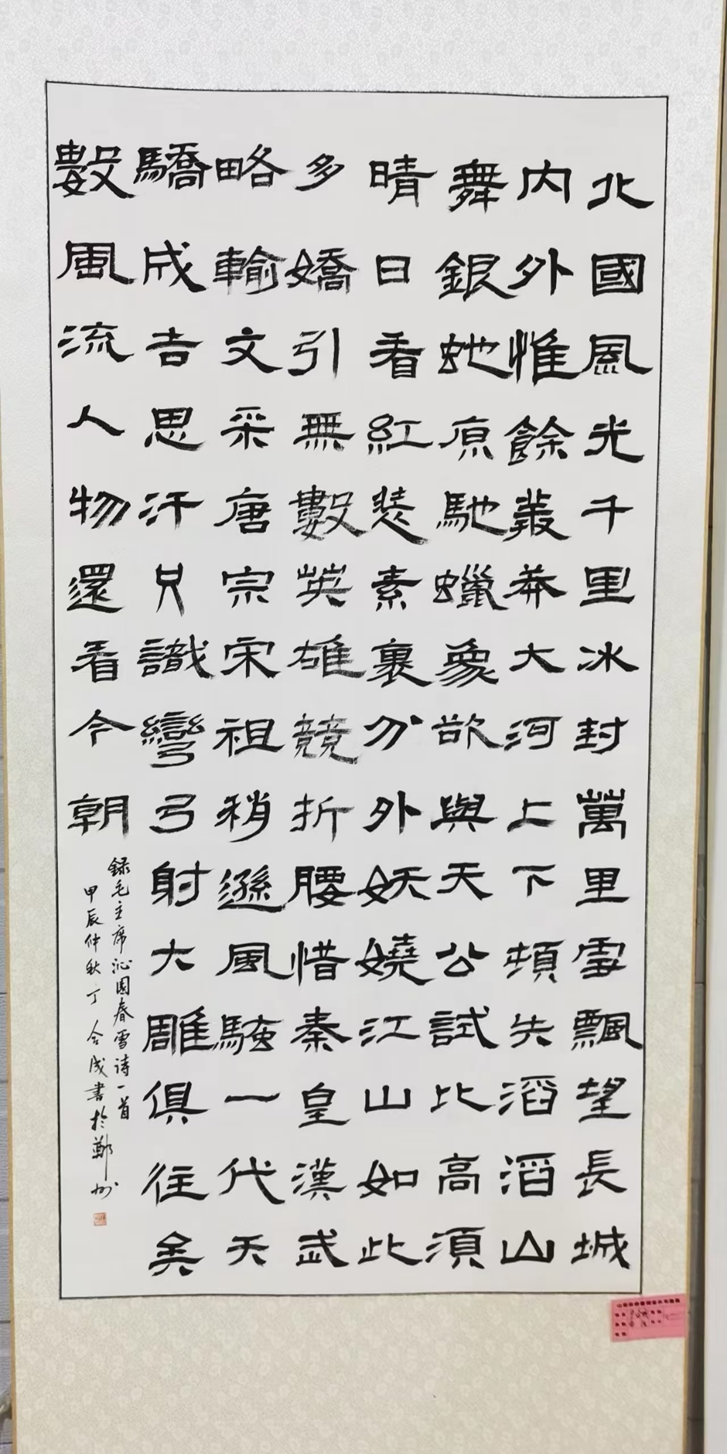 北國風光千里冰封萬里雪飄望長城
內外惟餘叢莽大河上下頓失滔滔山
舞銀蛇原馳蠟象欲與天公試比高須
晴日看紅裝素裹分外妖嬈江山如此
多嬌引無數英雄競折腰惜秦皇漢武
略輸文采唐宗宋祖稍遜風騷一代天
驕成吉思汗只識彎弓射大雕俱往矣
數風流人物還看今朝
錄毛主席沁園春雪诗一首
甲辰仲秋丁合成書於鄭州